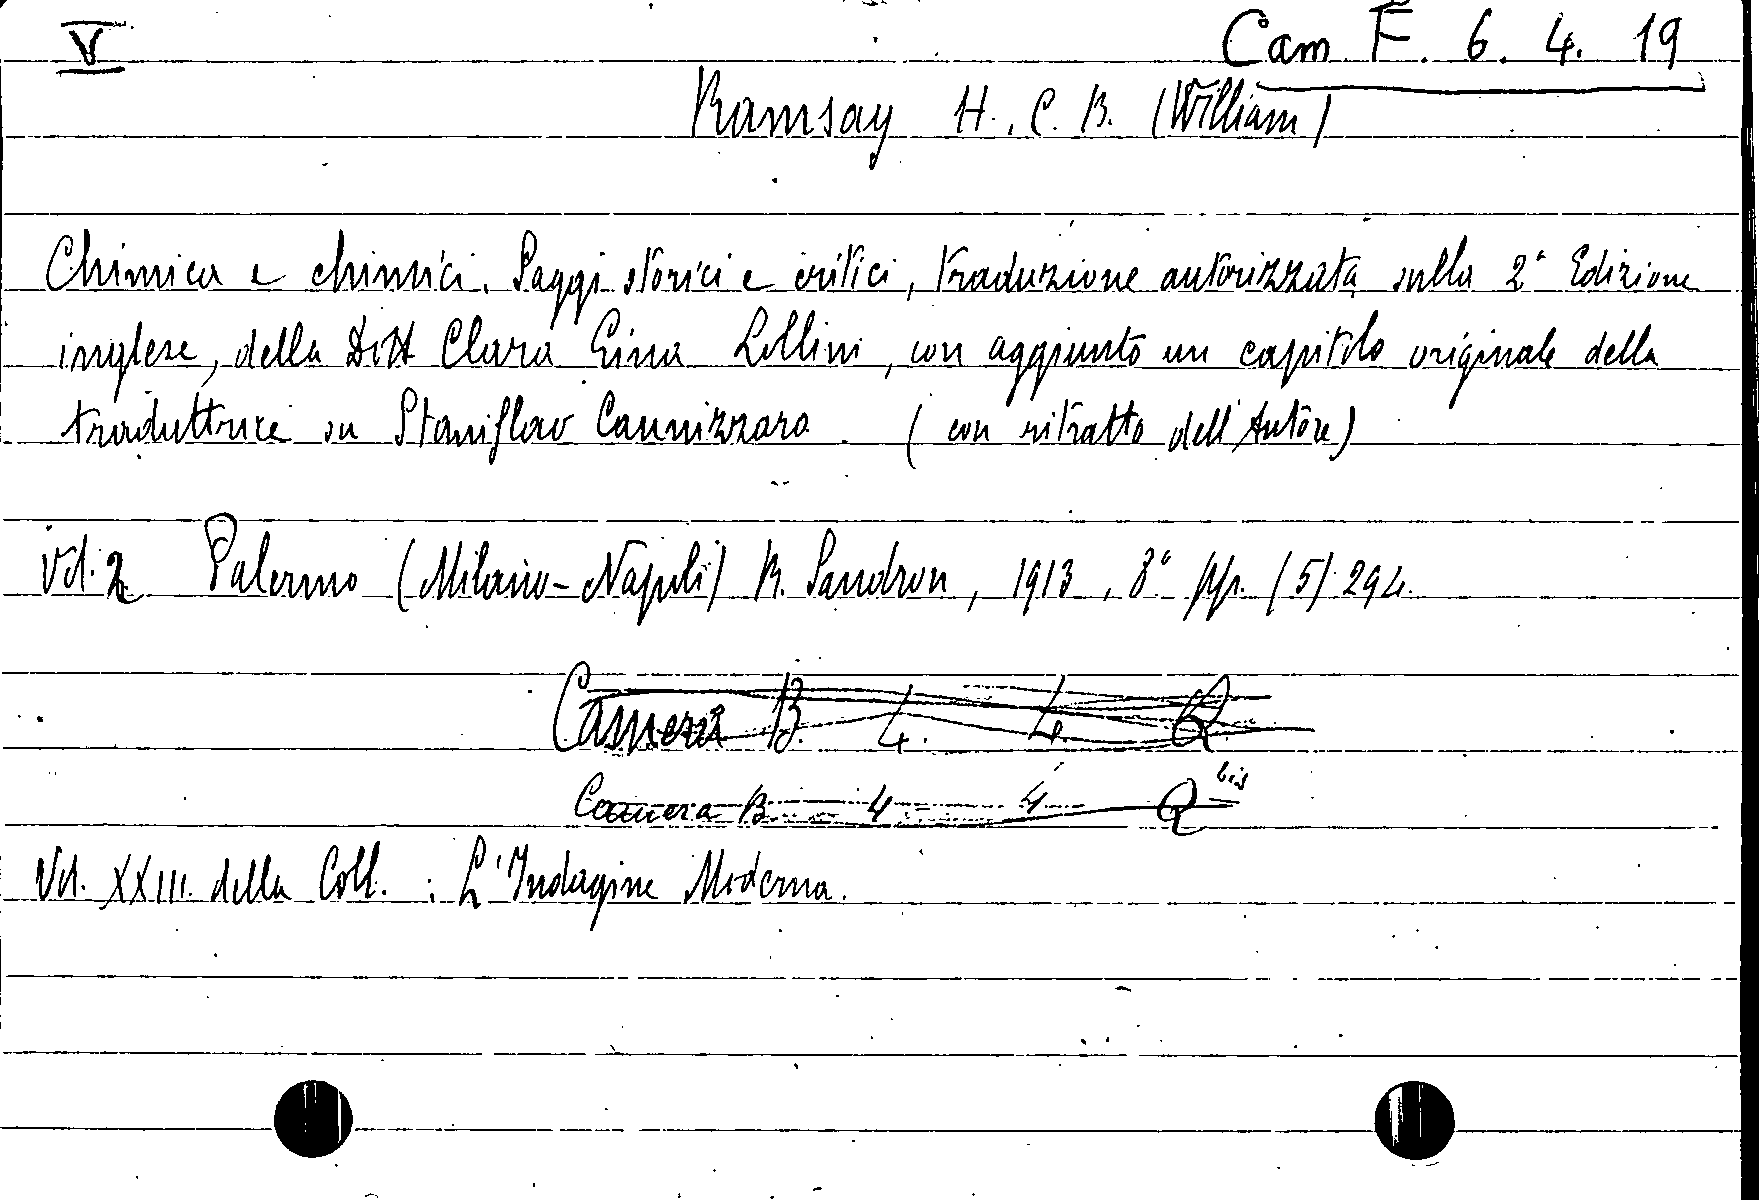 V
Cam F. 6. 4. 19
Ramsay H. C. B. (William)
Chimica e chimici. Saggi storici e critici, traduzione autorizzata sulla 2ª Edizione
inglese, della Dott Clara Gina Lollini, con aggiunto un capitolo originale della
traduttrice su Stanislao Cannizzaro. (con ritratto dell'Autore)
Vol. 2 Palermo (Milano-Napoli) R. Sandron, 1913, 8° pp. (5) 294.
Camera B. 4. 4. Q
Camera B 4 4 Q bis
Vol. XXIII della Coll. : L'Indagine Moderna.